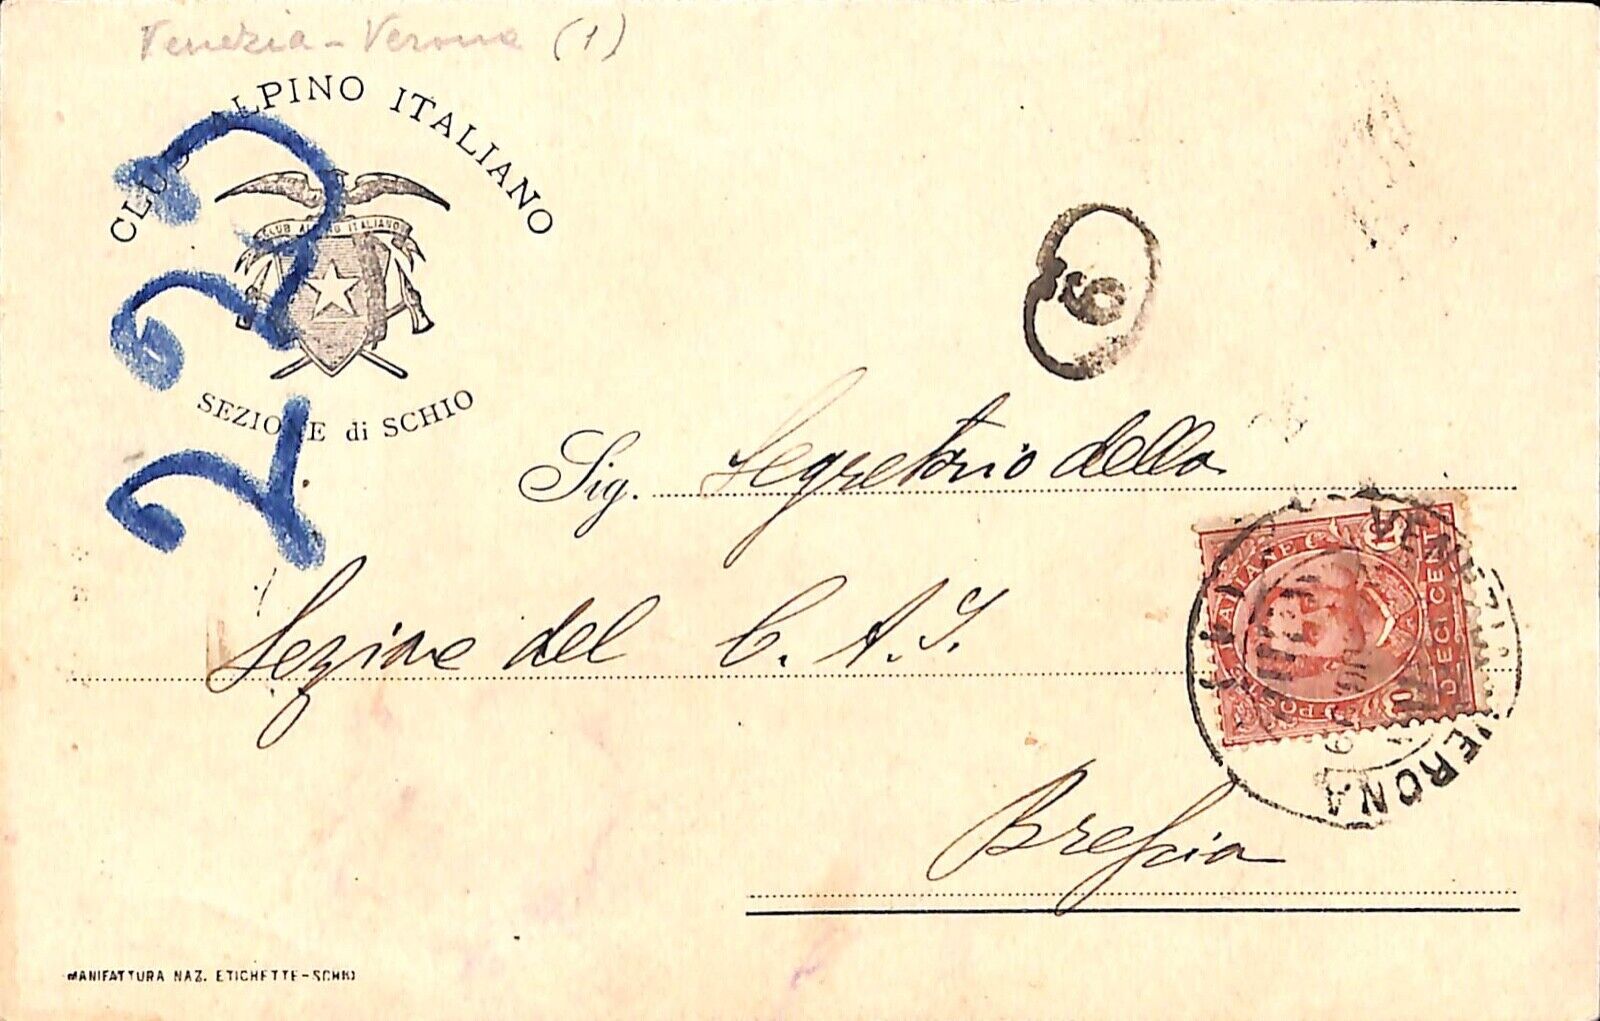 Venezia - Verona (1)
CLUB ALPINO ITALIANO
CLUB ALPINO ITALIANO
SEZIONE di SCHIO
222
6
Sig. Segretario della
Sezione del C. A. I.
Brescia
POSTE ITALIANE
DIECI CENT
10
VENEZIA
VERONA
MANIFATTURA NAZ. ETICHETTE-SCHIO